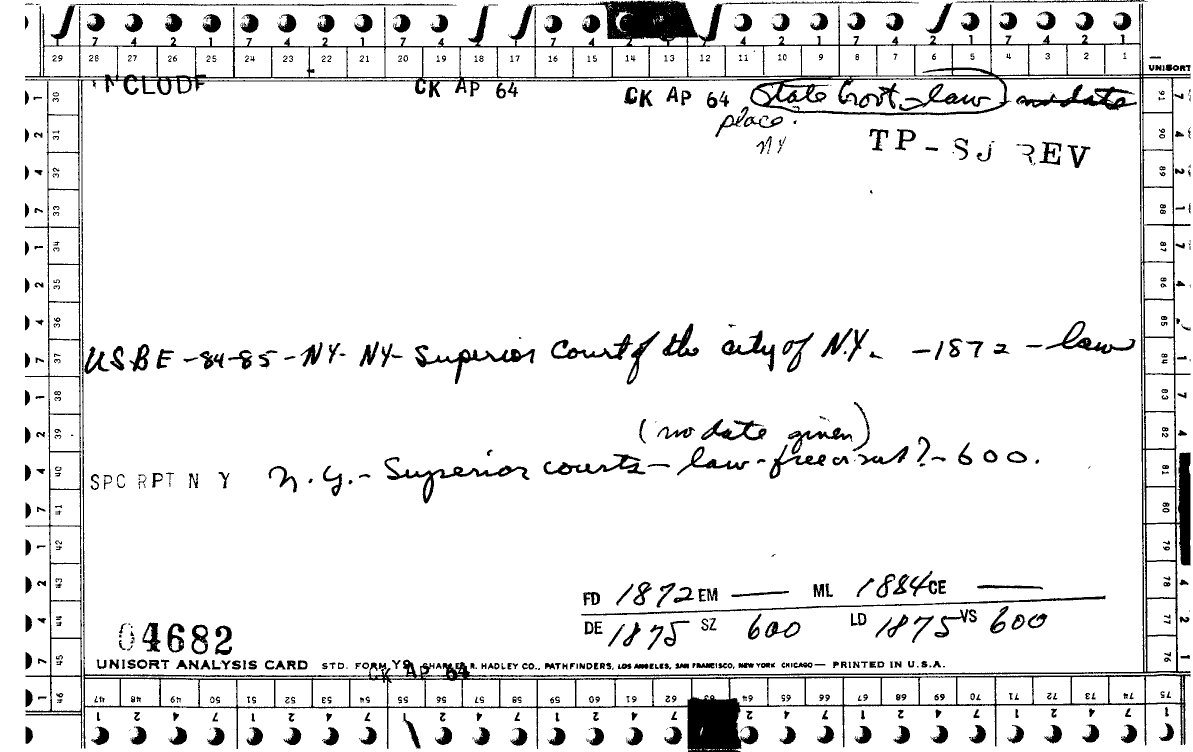 7 4 2 1 7 4 2 1 7 4 2 1 7 4 2 1 7 4 2 1 7 4 2 1 7 4 2 1
29 28 27 26 25 24 23 22 21 20 19 18 17 16 15 14 13 12 11 10 9 8 7 6 5 4 3 2 1
UNISORT
INCLUDE CK AP 64 CK AP 64 State Govt - law - no date
place?
NY
TP - SJ REV
USBE - 84-85 - NY - NY - Superior Court of the city of N.Y. - 1872 - law
(no date given)
SPC RPT N Y N.Y. - Superior courts - law - free or not? - 600.
FD 1872 EM — ML 1884 CE —
DE 1875 SZ 600 LD 1875 VS 600
04682
UNISORT ANALYSIS CARD STD. FORM Y9 CHARLES R. HADLEY CO., PATHFINDERS, LOS ANGELES, SAN FRANCISCO, NEW YORK CHICAGO — PRINTED IN U.S.A.
CK AP 64
30 31 32 33 34 35 36 37 38 39 40 41 42 43 44 45 46
91 90 89 88 87 86 85 84 83 82 81 80 79 78 77 76 75
47 48 49 50 51 52 53 54 55 56 57 58 59 60 61 62 63 64 65 66 67 68 69 70 71 72 73 74